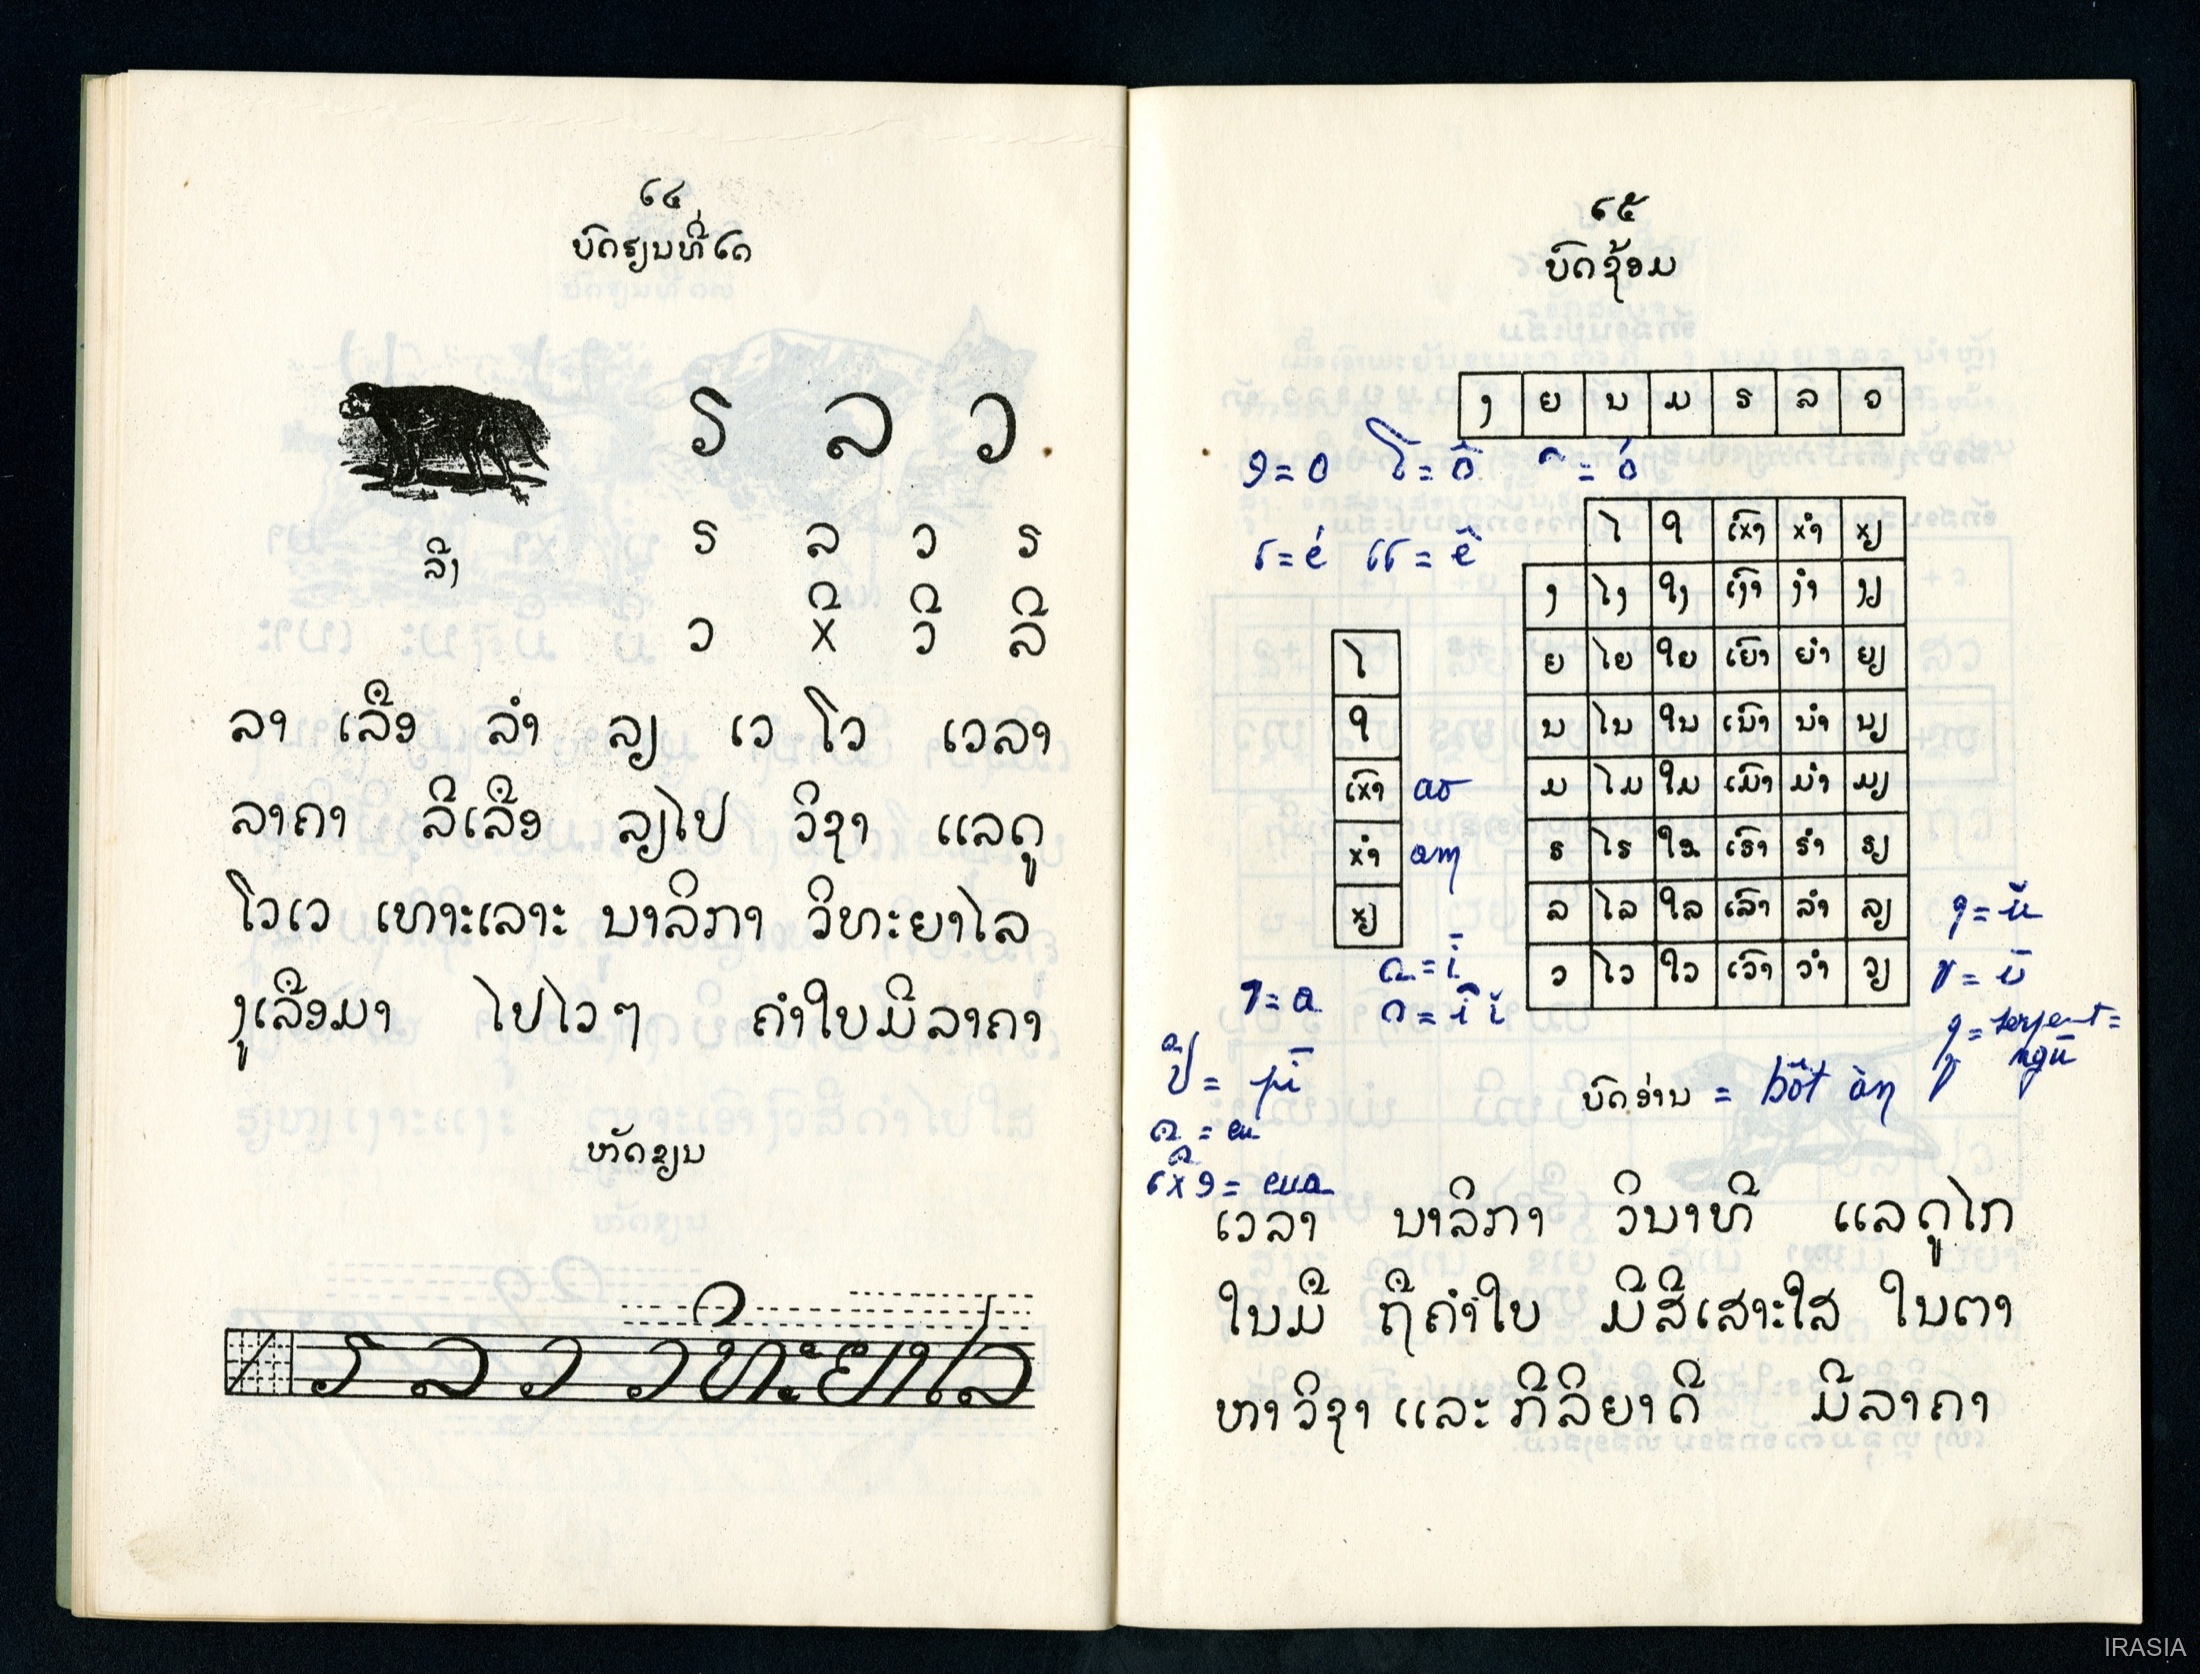 ໒໔
ບົດຮຽນທີ່ ໒໑
ຣ ລ ວ
ຣ ລ ວ ຣ
ລີງ
ວ xີ ວີ ລີ
ລາ ເລືອ ລຳ ລຽ ເວ ໂວ ເວລາ
ລາຄາ ລີເລືອ ລຽໄປ ວິຊາ ແລດູ
ໂວເວ ເຫາະເລາະ ນາລິກາ ວິທະຍາໄລ
ງູເລືອມາ ໄປໄວໆ ຄຳໃບມີລາຄາ
ຫັດຂຽນ
ຣ ລ ວ ວິທະຍາໄລ
໒໕
ບົດຊ້ອມ
ງ ຍ ນ ມ ຣ ລ ວ
ອ = o ໂ = ô
ເ = é ແ = è
ໄ ໃ ເxົາ xຳ xຽ
ງ ໄງ ໃງ ເງົາ ງຳ ງຽ
ຍ ໄຍ ໃຍ ເຍົາ ຍຳ ຍຽ
ນ ໄນ ໃນ ເນົາ ນຳ ນຽ
ມ ໄມ ໃມ ເມົາ ມຳ ມຽ
ຣ ໄຣ ໃຣ ເຣົາ ຣຳ ຣຽ
ລ ໄລ ໃລ ເລົາ ລຳ ລຽ
ວ ໄວ ໃວ ເວົາ ວຳ ວຽ
ໄ
ໃ
ເxົາ ao
xຳ am
xຽ
າ = a
ປີ = pī
ເxືອ = eua
serpent = ngū
ບົດອ່ານ = bôt àn
ເວລາ ນາລິກາ ວິນາທີ ແລດູໄກ
ໃບມື ຖືຄຳໃບ ມີສີເສາະໃສ ໃບຕາ
ຫາວິຊາ ແລະ ກິລິຍາດີ ມີລາຄາ
IRASIA